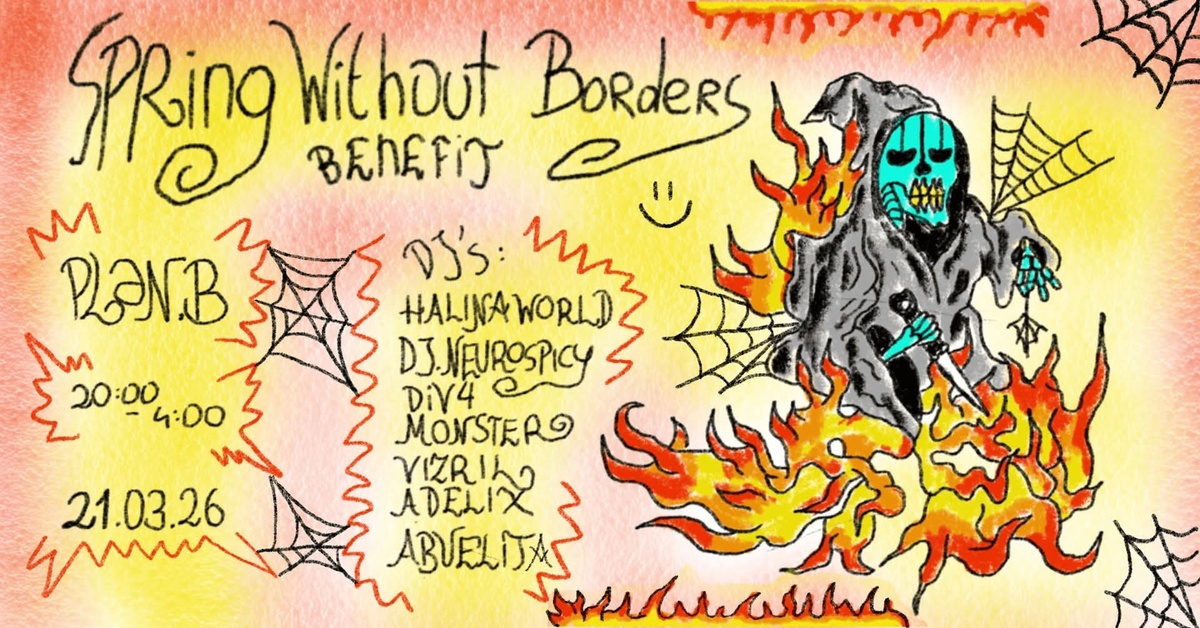 SPRing Without Borders
BENEFiT
PLaN.B
20:00
- 4:00
21.03.26
DJ's:
HALINA WORLD
DJ.NEUROSPICY
DiV4
MONSTER
VIZRIL
ADELIX
ABUELITA